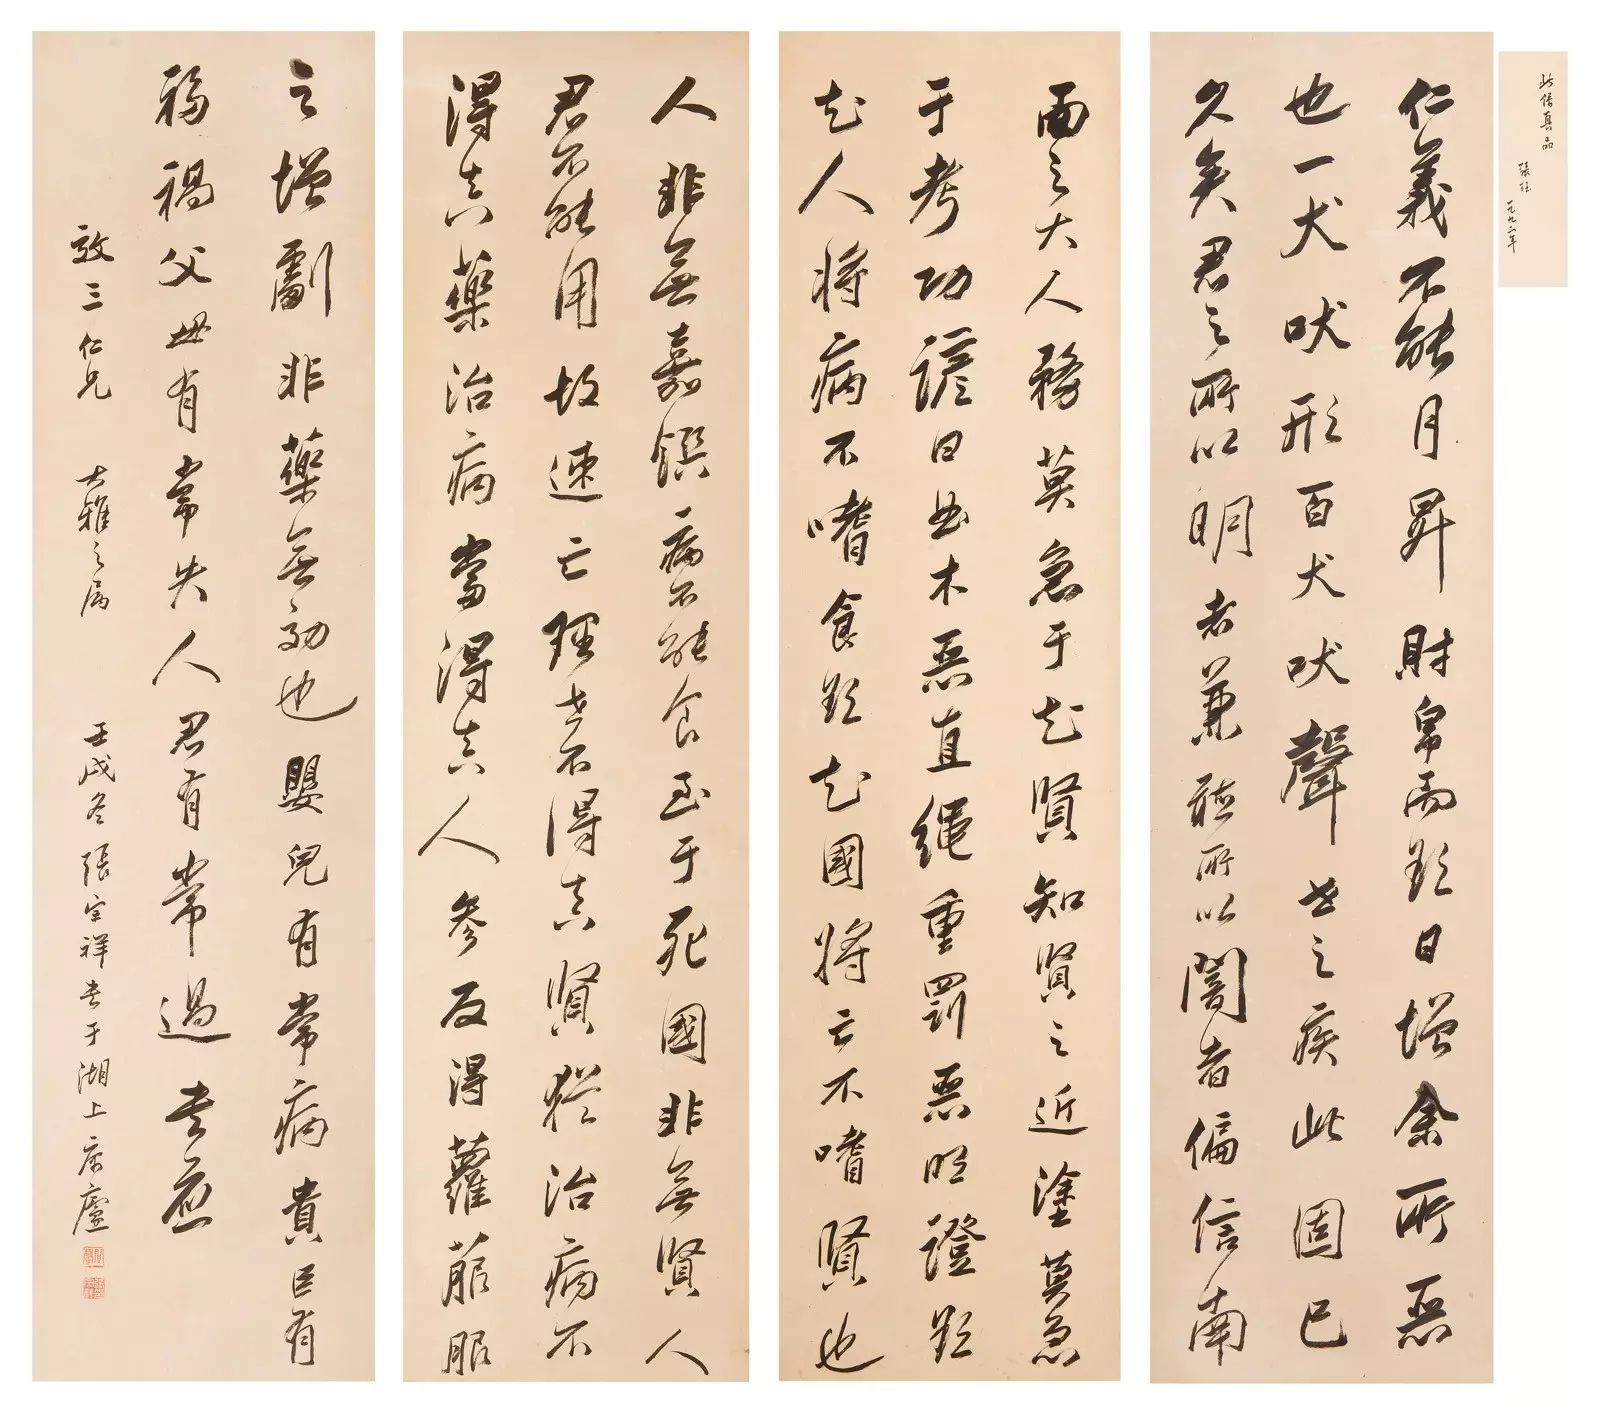 此係真品
張珏
一九九二年
仁義不能月昇財帛而欲日增余所惡
也一犬吠形百犬吠聲世之疾此固已
久矣君之所以明者兼聽所以闇者偏信南
面之大人務莫急于知賢知賢之近塗莫急
于考功諺曰曲木惡直繩重罰惡明證欲
知人將病不嗜食欲知國將亡不嗜賢也
人非無嘉饌病不能食至于死國非無賢人
君不能用故速亡理世不得真賢猶治病不
得真藥治病當得真人參反得蘿菔服
之增劇非藥無効也嬰兒有常病貴臣有
禍禍父母有常失人君有常過書應
效三仁兄大雅之屬壬戌冬張宗祥書于湖上寄廬